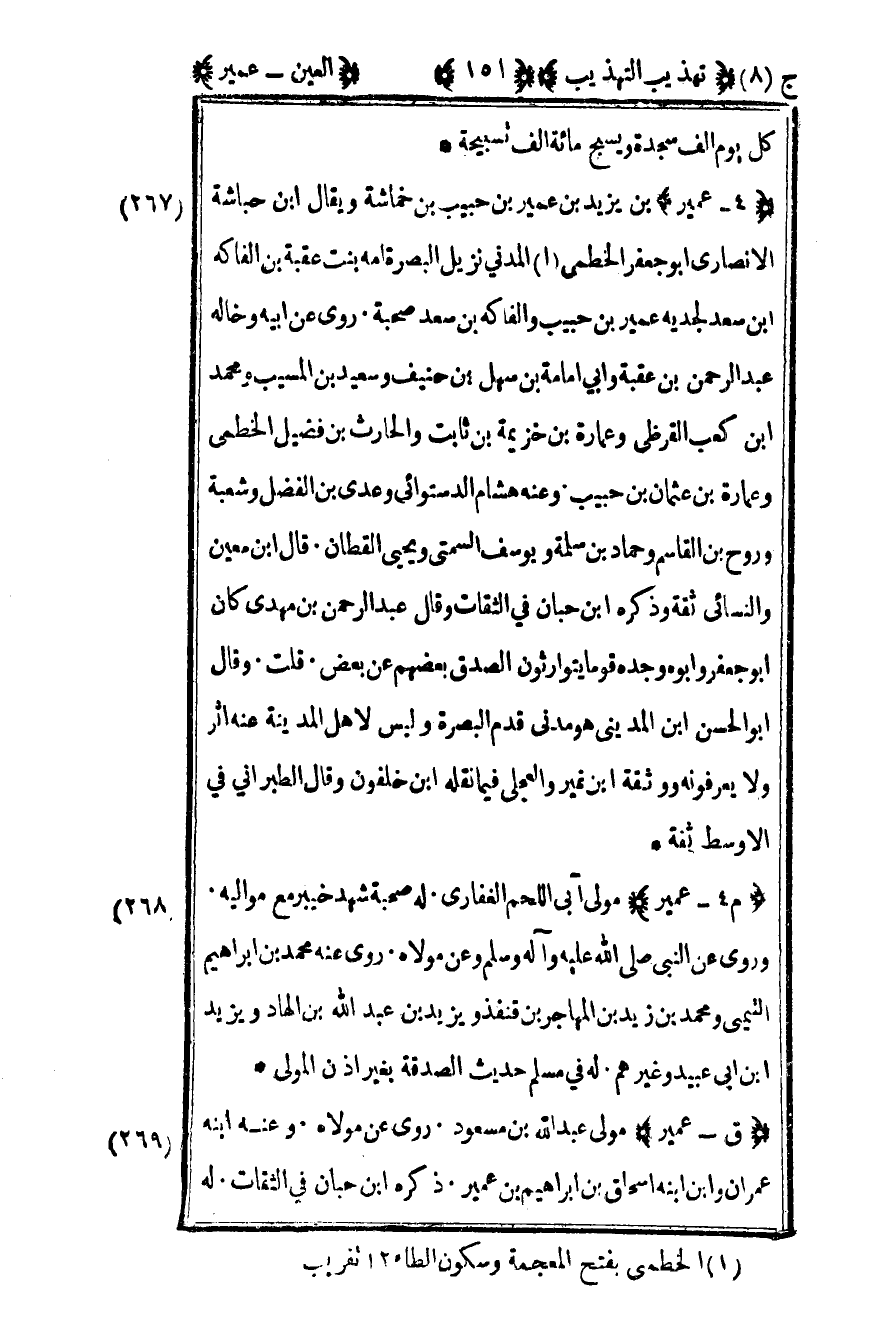 ج (٨) ﴿ تهذيب التهذيب ﴾ ﴿ ١٥١ ﴾ ﴿ العين ـ عمير ﴾
كل يوم الف سجدة ويسبح مائة الف تسبيحة *
﴿ ٤ ـ عمير ﴾ بن يزيد بن عمير بن حبيب بن خماشة ويقال ابن حباشة (٢٦٧)
الانصارى ابو جعفر الخطمى (١) المدني نزيل البصرة امه بنت عقبة بن الفاكه
ابن سعد لجديه عمير بن حبيب والفاكه بن سعد صحبة . روى عن ابيه وخاله
عبد الرحمن بن عقبة وابي امامة بن سهل بن حنيف وسعيد بن المسيب ومحمد
ابن كعب القرظي وعمارة بن خزيمة بن ثابت والحارث بن فضيل الخطمى
وعمارة بن عثمان بن حبيب . وعنه هشام الدستوائى وعدى بن الفضل وشعبة
وروح بن القاسم وحماد بن سلمة ويوسف السمتى ويحيى القطان . قال ابن معين
والنسائى ثقة وذكره ابن حبان في الثقات وقال عبد الرحمن بن مهدى كان
ابو جعفر وابوه وجده قوما يتوارثون الصدق بعضهم عن بعض . قلت . وقال
ابو الحسن ابن المدينى هو مدنى قدم البصرة وليس لاهل المدينة عنه اثر
ولا يعرفونه ووثقة ابن نمير والعجلى فيما نقله ابن خلفون وقال الطبراني في
الاوسط ثقة *
﴿ م ٤ ـ عمير ﴾ مولى آبى اللحم الغفارى . له صحبة شهد خيبر مع مواليه . (٢٦٨)
وروى عن النبى صلى الله عليه وآله وسلم وعن مولاه . روى عنه محمد بن ابراهيم
التيمى ومحمد بن زيد بن المهاجر بن قنفذ ويزيد بن عبد الله بن الهاد ويزيد
ابن ابى عبيد وغيرهم . له في مسلم حديث الصدقة بغير اذن المولى *
﴿ ق ـ عمير ﴾ مولى عبد الله بن مسعود . روى عن مولاه . وعنه ابنه (٢٦٩)
عمران وابن ابنه اسحاق بن ابراهيم بن عمير . ذكره ابن حبان في الثقات . له
(١) الخطمى بفتح المعجمة وسكون الطاء ١٢ تقريب